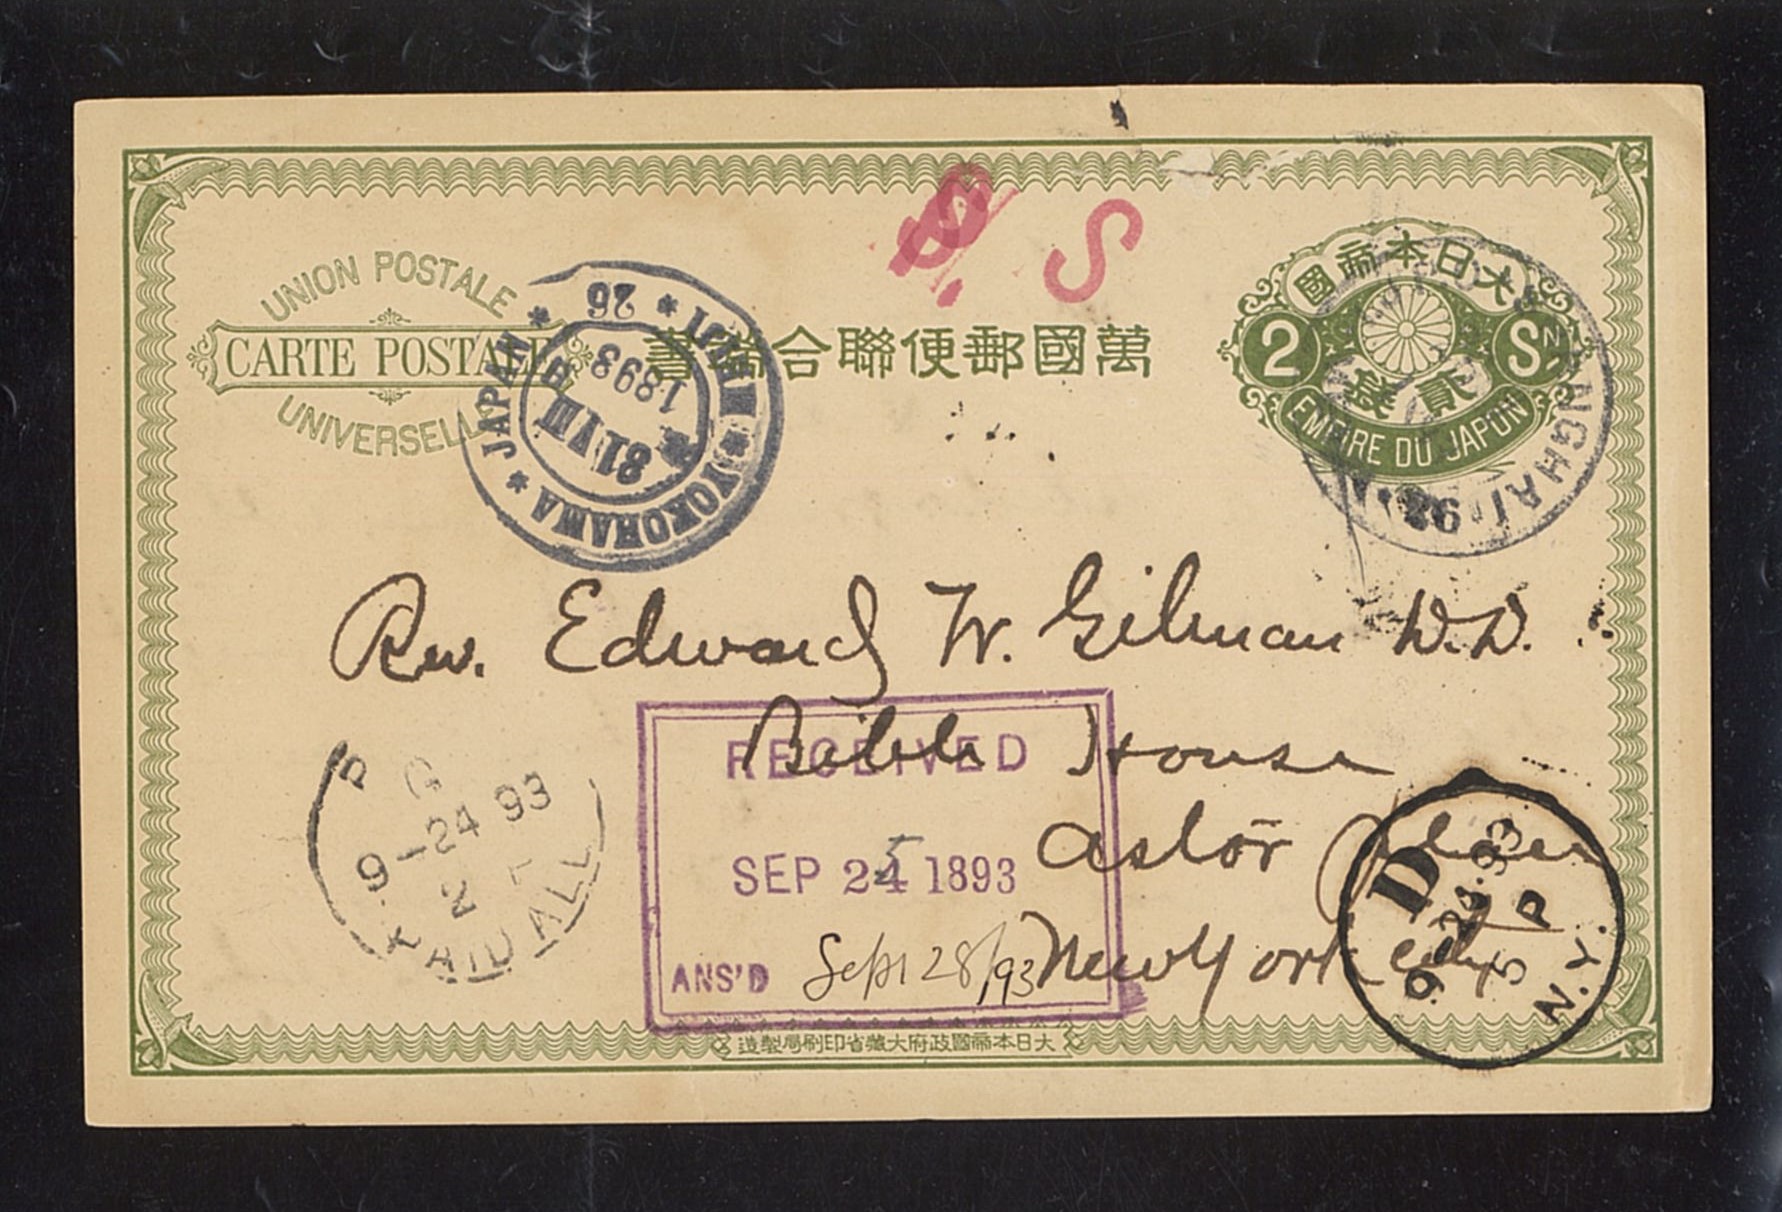 UNION POSTALE
CARTE POSTALE
UNIVERSELLE
書端合聯便郵國萬
國帝本日大
2 SN
貳錢
EMPIRE DU JAPON
S
S
YOKOHAMA * JAPAN *
26
1893
31 VIII
NGHAI
92
Rev. Edward W. Gilman D.D.
Bible House
Astor Place
New York City
RECEIVED
SEP 24 1893
5
ANS'D Sept 28/93
P G
9-24 93
2
PAID ALL
D
9-24-93
5 P
N.Y.
造製局刷印省藏大府政國帝本日大